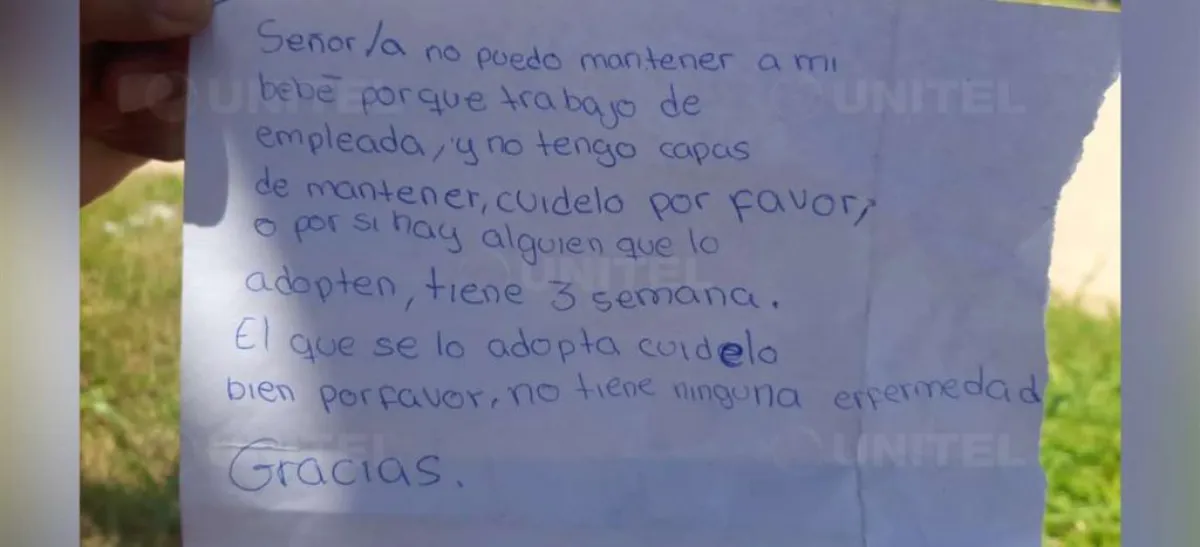 Señor/a no puedo mantener a mi
bebé porque trabajo de
empleada, y no tengo capas
de mantener, cuidelo por favor,
o por si hay alguien que lo
adopten, tiene 3 semana.
El que se lo adopta cuidelo
bien porfavor, no tiene ninguna enfermedad
Gracias.
UNITEL
UNITEL
UNITEL
UNITEL
UNITEL